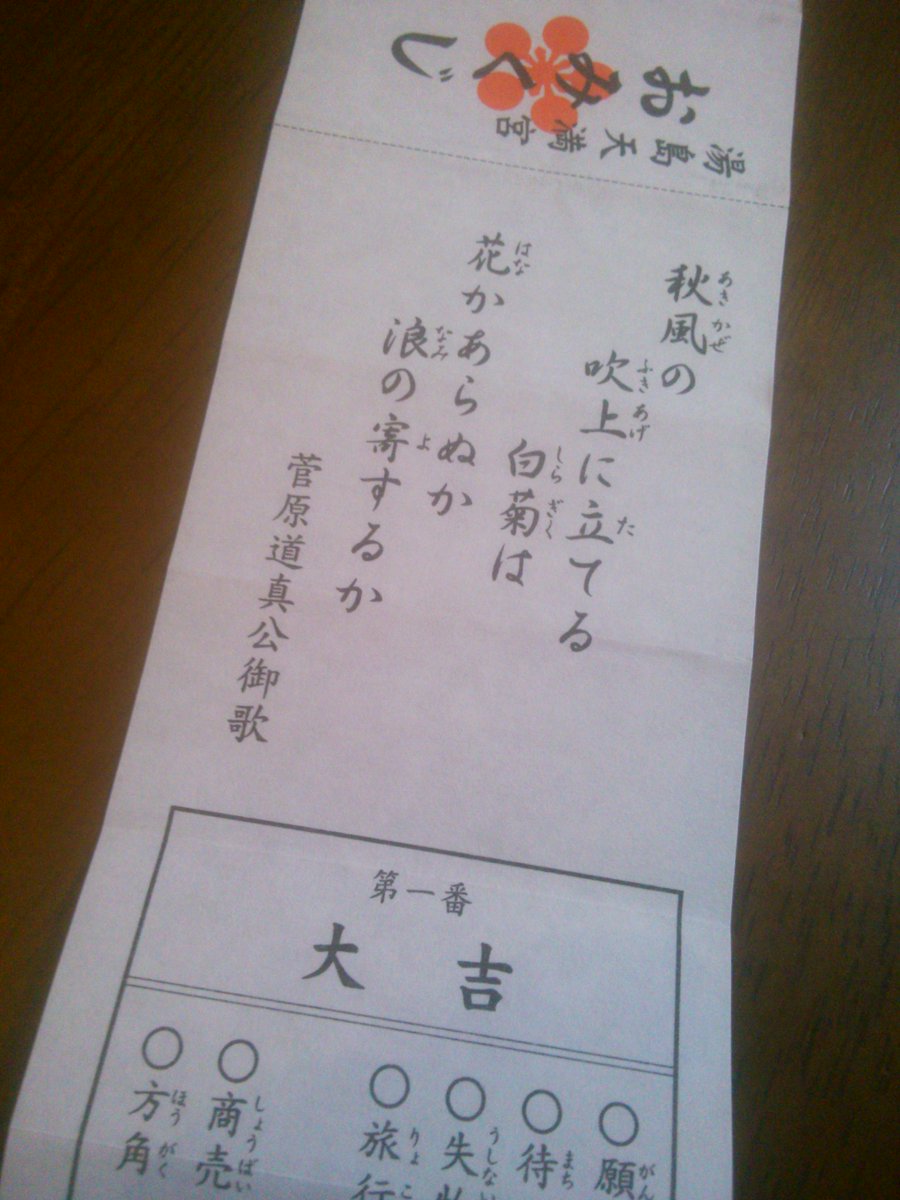 おみくじ
湯島天満宮
秋風の
吹上に立てる
白菊は
花かあらぬか
浪の寄するか
菅原道真公御歌
第一番
大吉
○願
○待
○失
○旅行
○商売
○方角